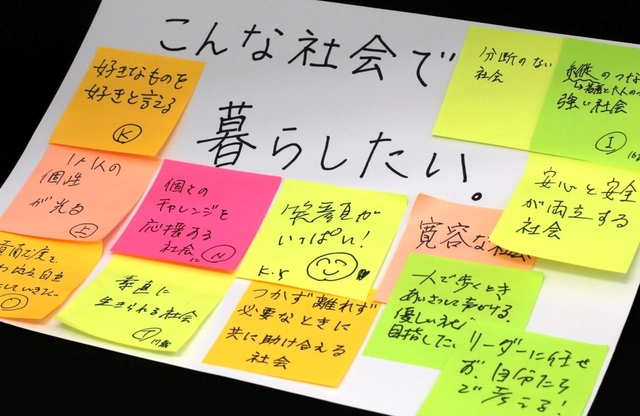 こんな社会で
暮らしたい。
好きなものを
好きと言える
K
分断のない
社会
強い社会
I
1人1人の
個性
が光る
個々の
チャレンジを
応援ある
社会
N
笑顔が
いっぱい!
K.S
寛容な社会
安心と安全
が両立する
社会
素直に
生きられる社会
つかず離れず
必要なときに
共に助け合える
社会
一人で歩くとき
あいさつして声かける。
優しい
目指した。
リーダーに任せ
ず、自分たち
で考える!